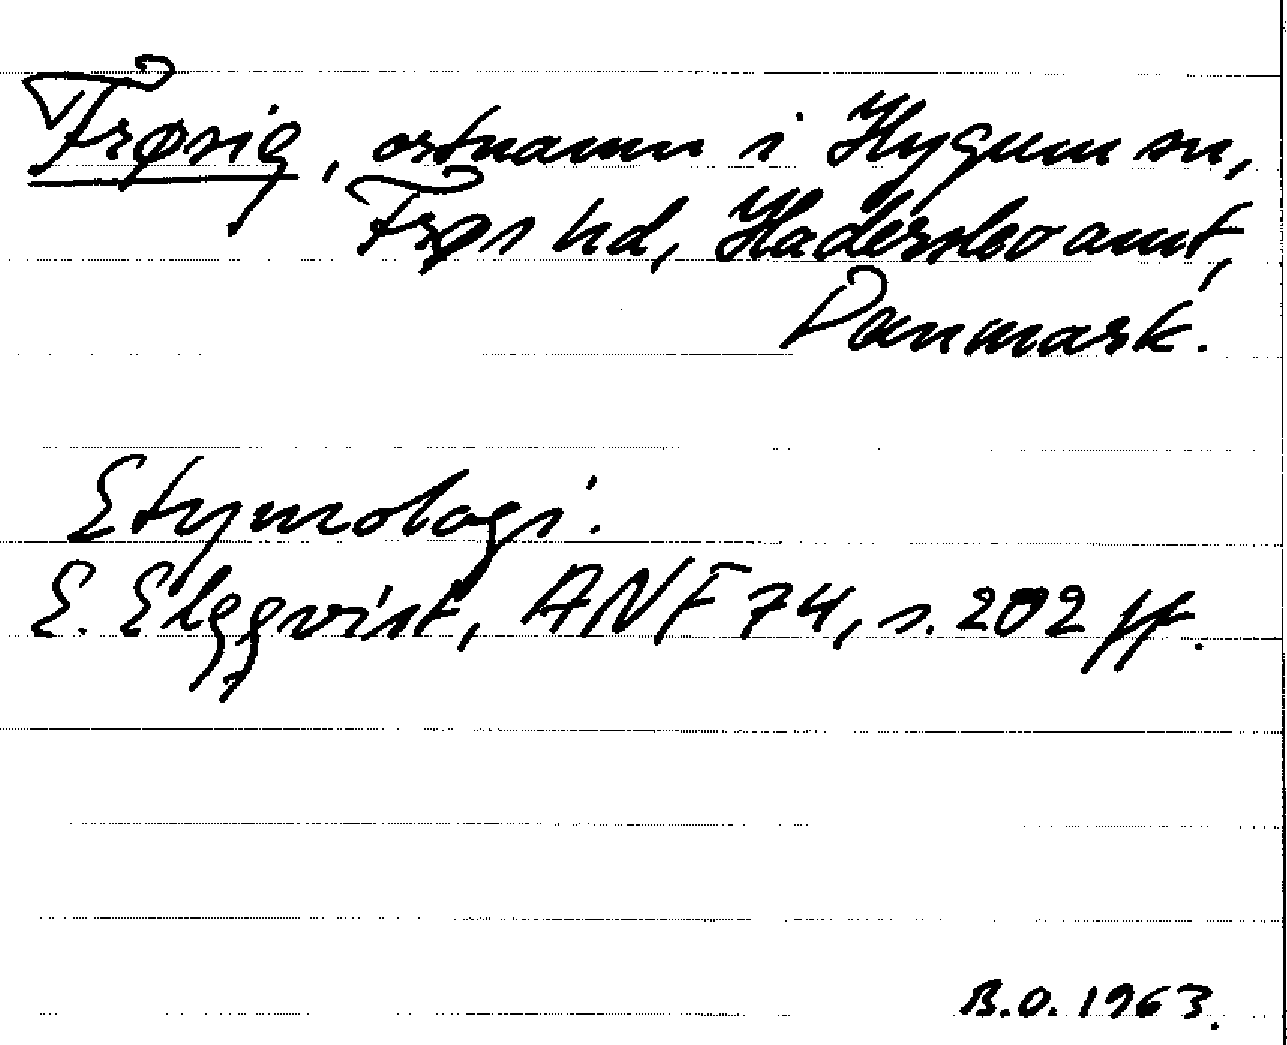 Frøsig, ortnamn i Hygum sn,
Frøs hd, Haderslev amt,
Danmark.
Etymologi:
E. Elgqvist, ANF 74, s. 202 ff.
B.O. 1963.